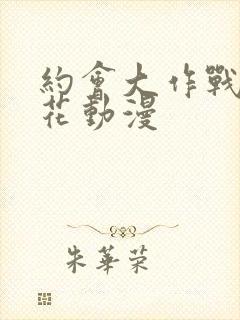 約會大作戰
花動漫
朱華荣